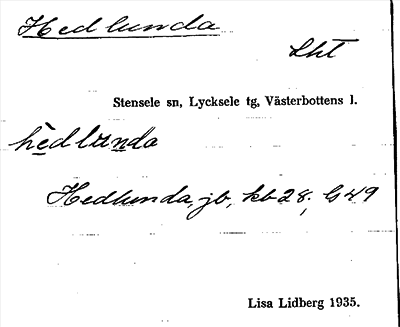 Hedlunda
Lht
Stensele sn, Lycksele tg, Västerbottens l.
hedlunda
Hedlunda, jb, kb 28; G 49
Lisa Lidberg 1935.